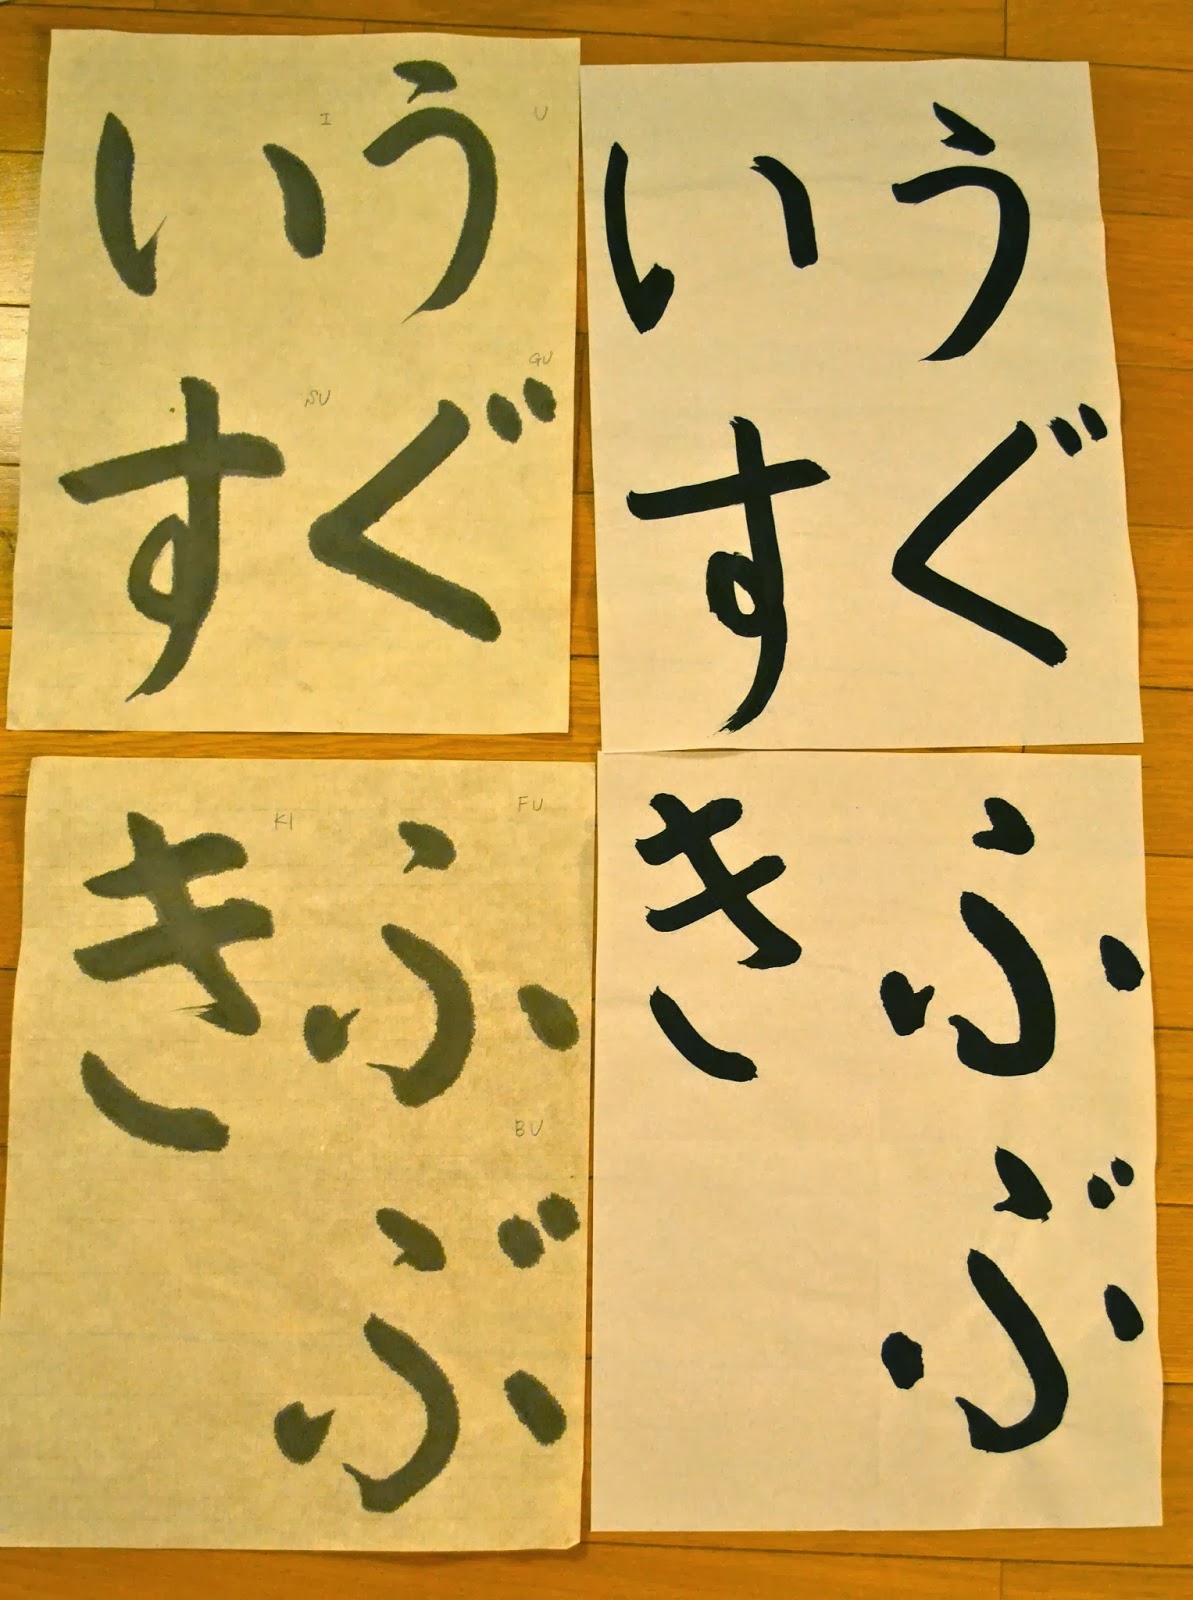 うぐ
いす
U
GU
I
SU
うぐ
いす
ふぶ
き
FU
BU
KI
ふぶ
き